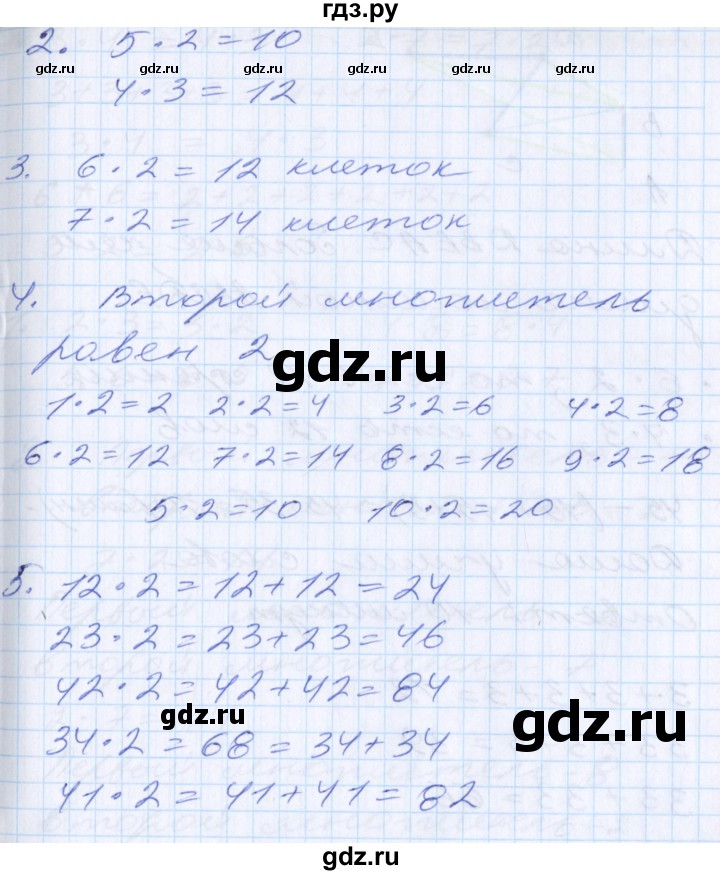 гдз.ру
2. 5·2=10
gdz.ru gdz.ru gdz.ru gdz.ru gdz.ru
4·3=12
3. 6·2=12 клеток
7·2=14 клеток
4. Второй множитель
равен 2
gdz.ru
1·2=2 2·2=4 3·2=6 4·2=8
6·2=12 7·2=14 8·2=16 9·2=18
5·2=10 10·2=20
5. 12·2=12+12=24
23·2=23+23=46
42·2=42+42=84
gdz.ru gdz.ru
34·2=68=34+34
41·2=41+41=82
gdz.ru